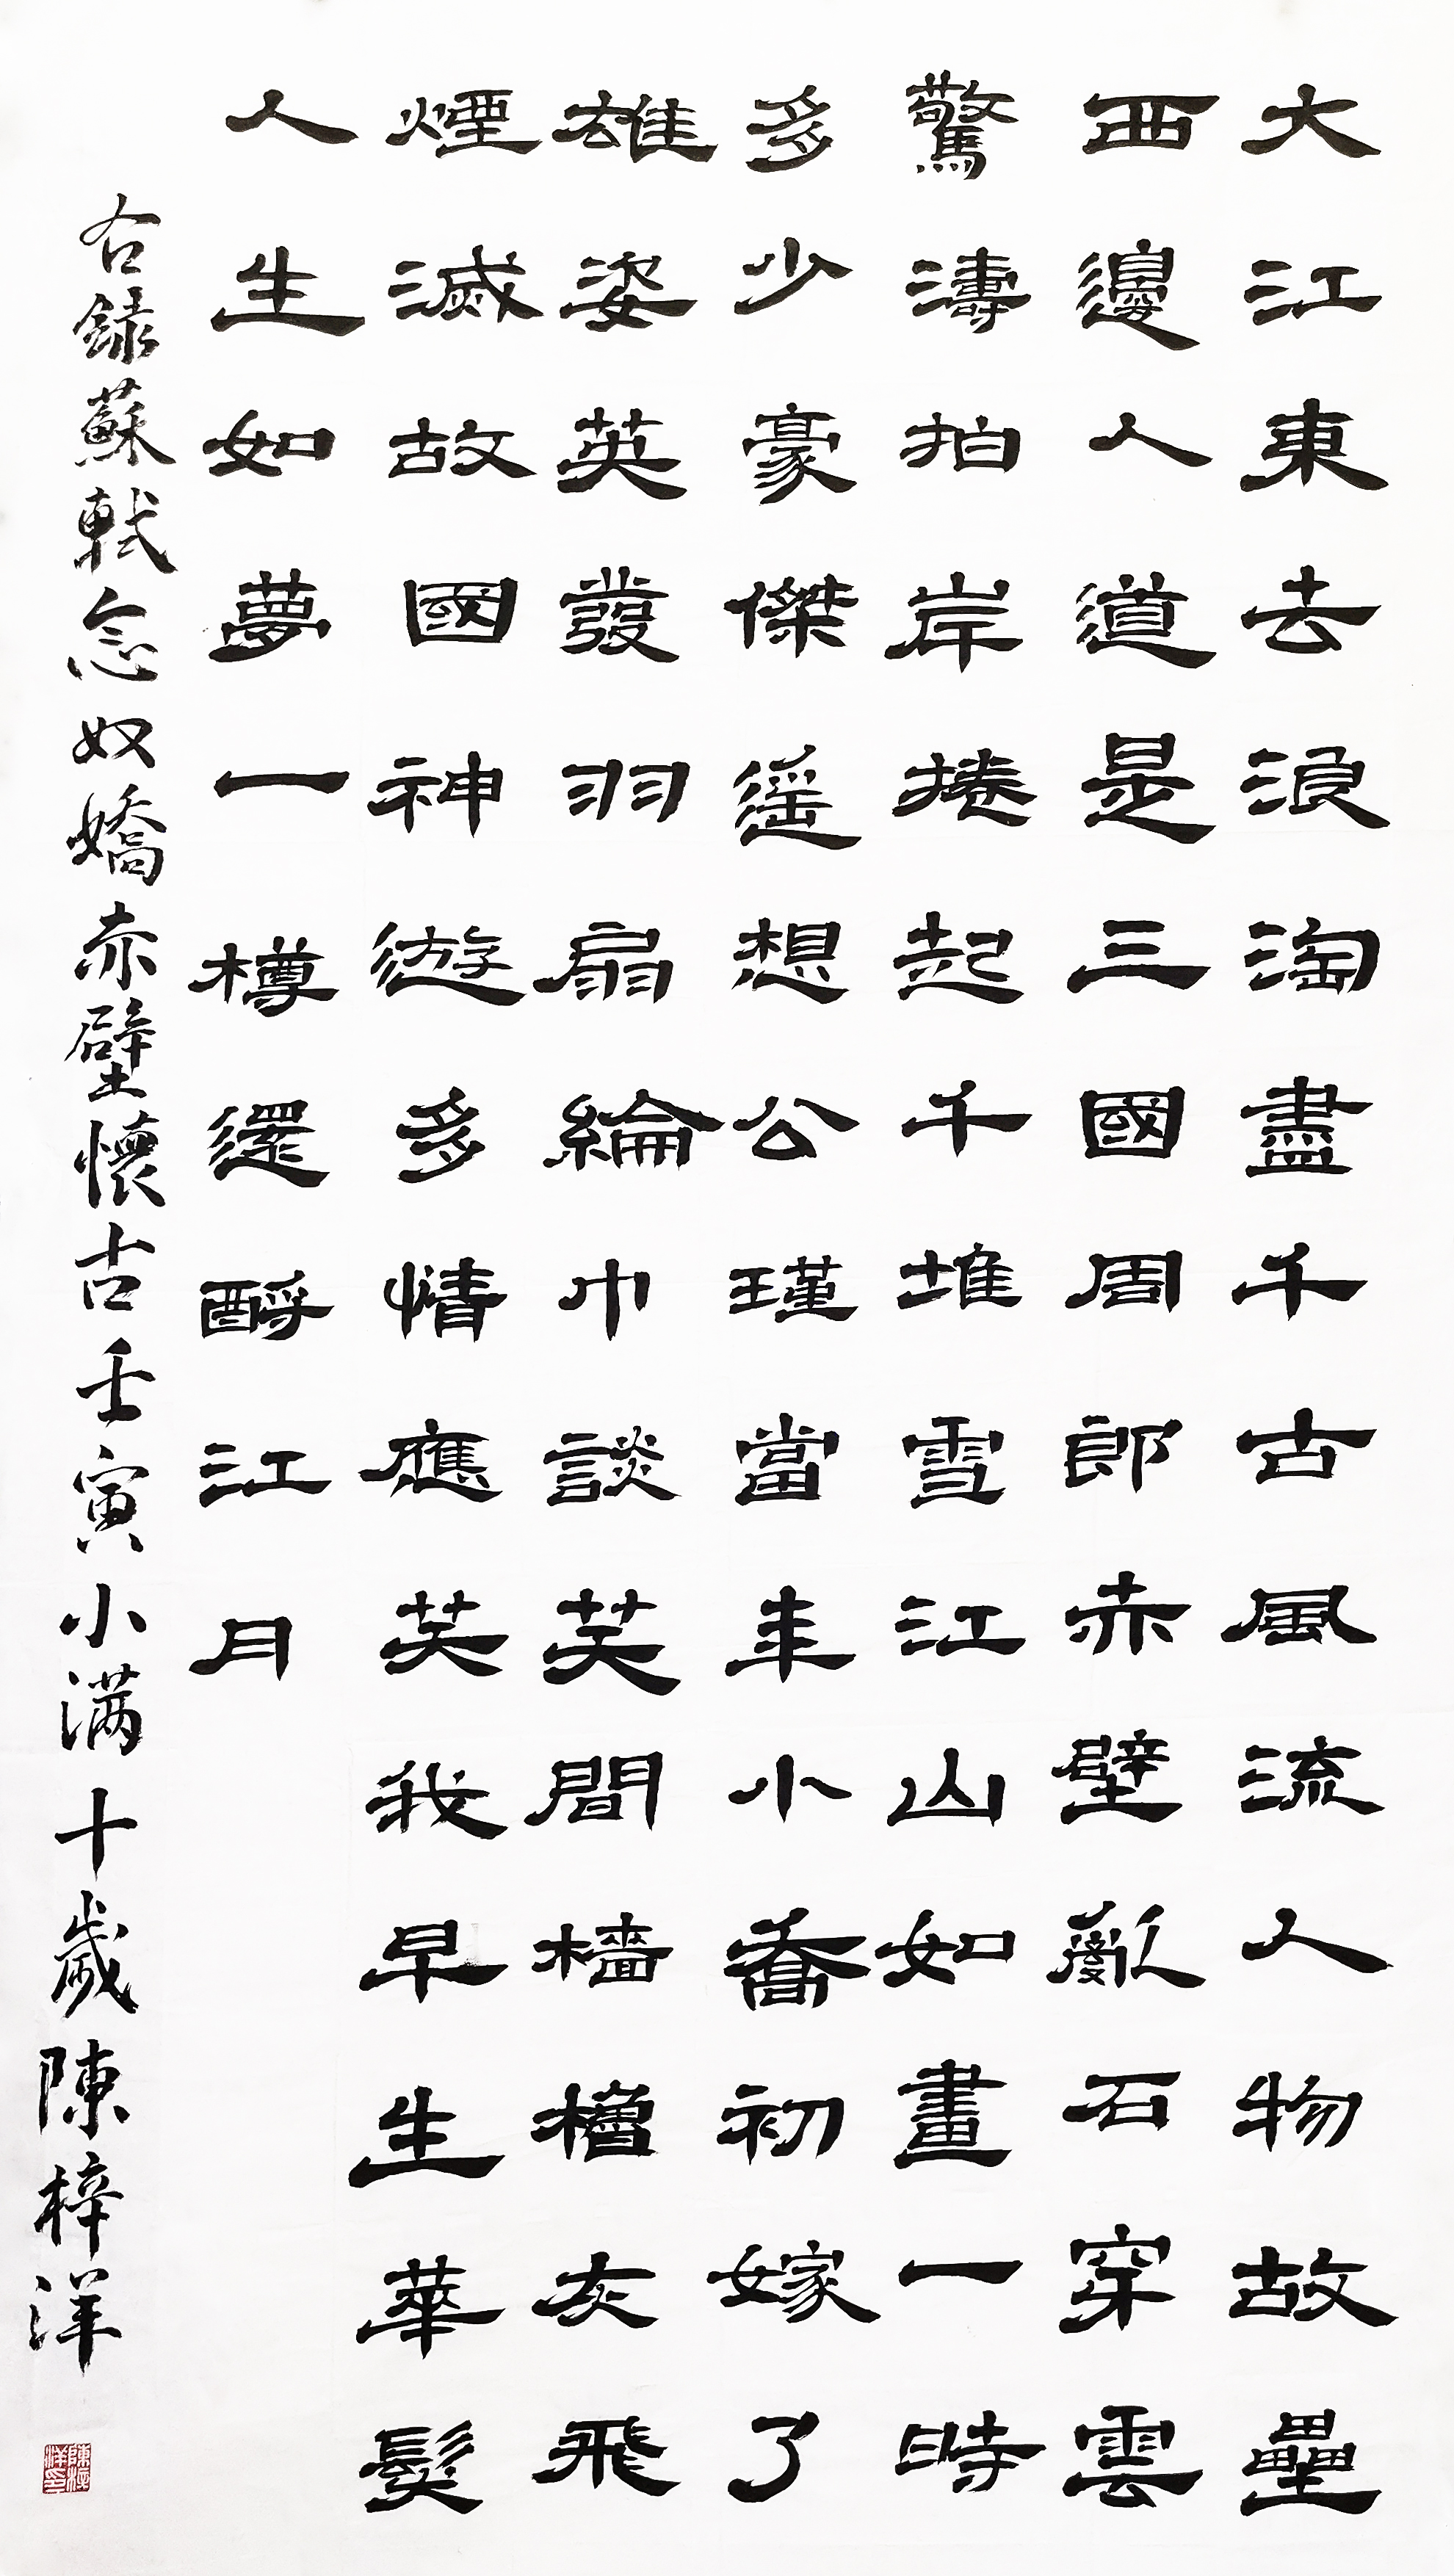 大江東去浪淘盡千古風流人物故壘
西邊人道是三國周郎赤壁亂石穿雲
驚濤拍岸捲起千堆雪江山如畫一時
多少豪傑遙想公瑾當年小喬初嫁了
雄姿英發羽扇綸巾談笑間檣櫓灰飛
煙滅故國神遊多情應笑我早生華髮
人生如夢一樽還酹江月
右録蘇軾念奴嬌赤壁懷古壬寅小满十歲陳梓洋
陳梓洋印